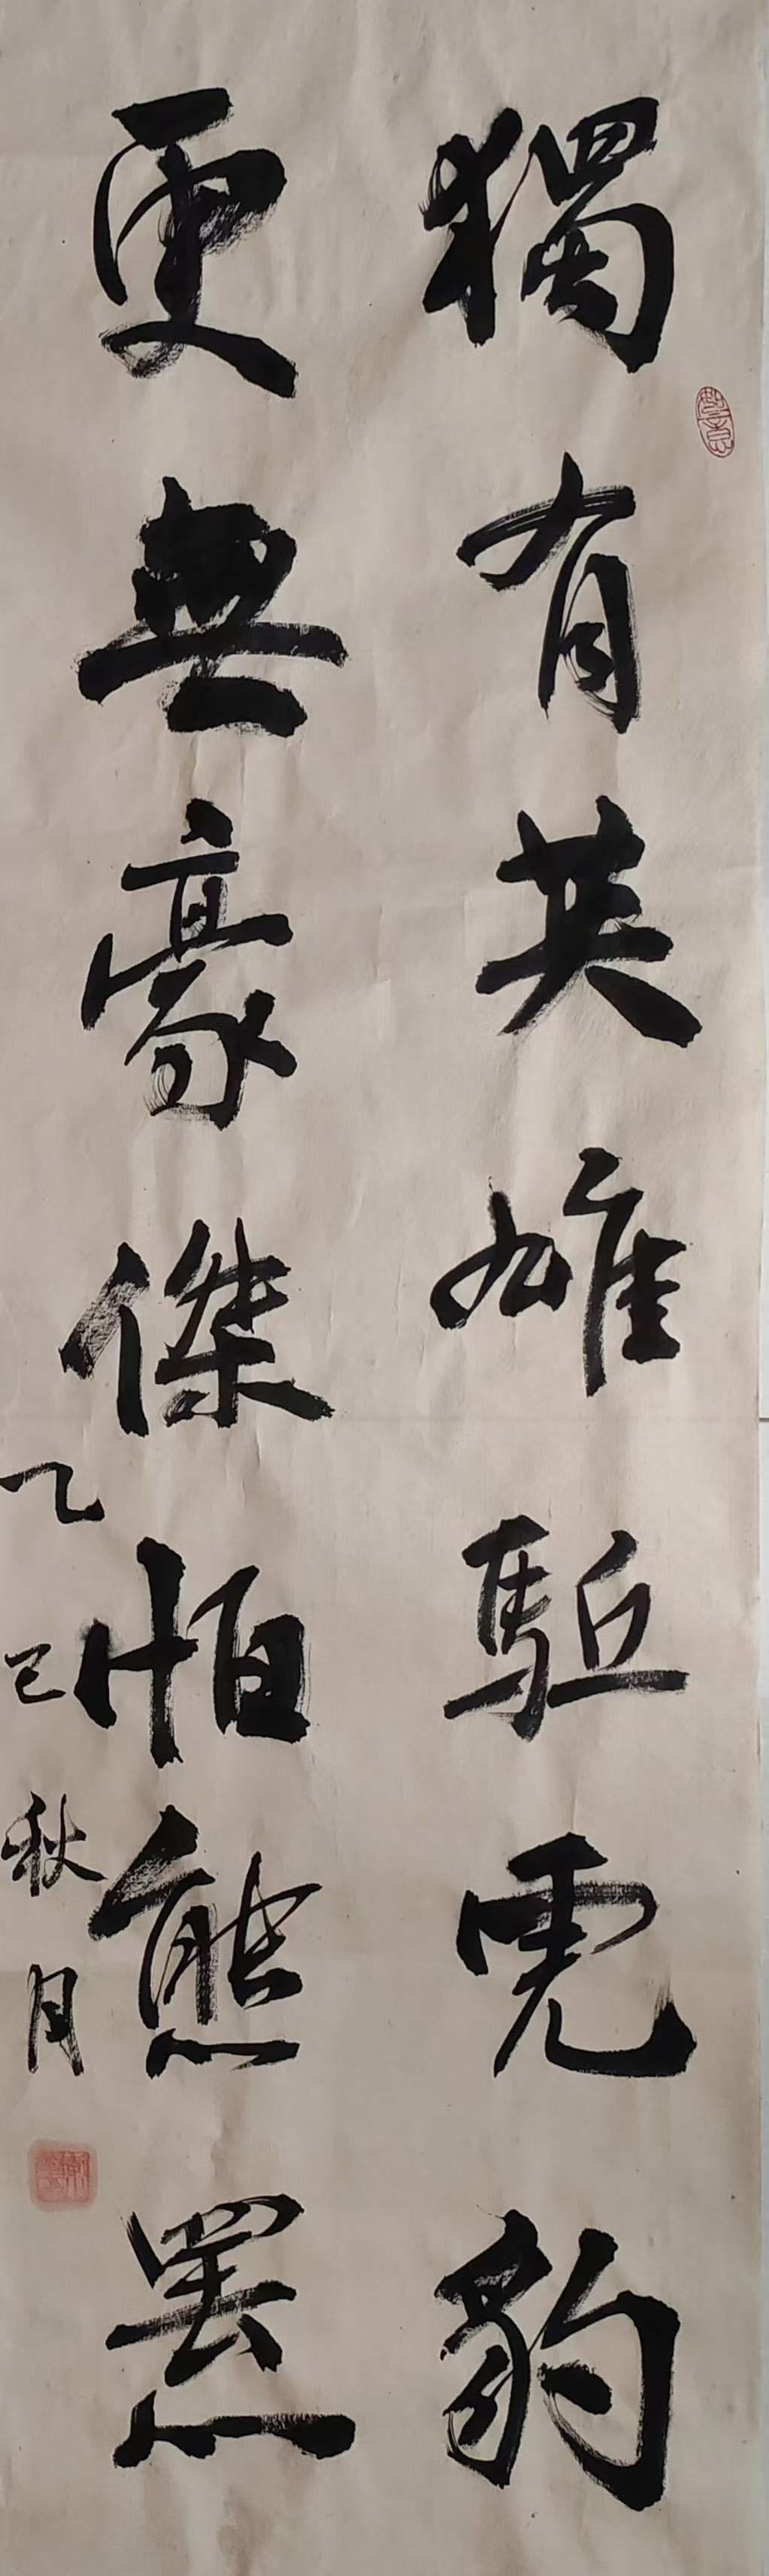 獨有英雄駈虎豹
更無豪傑怕熊羆
乙巳秋月